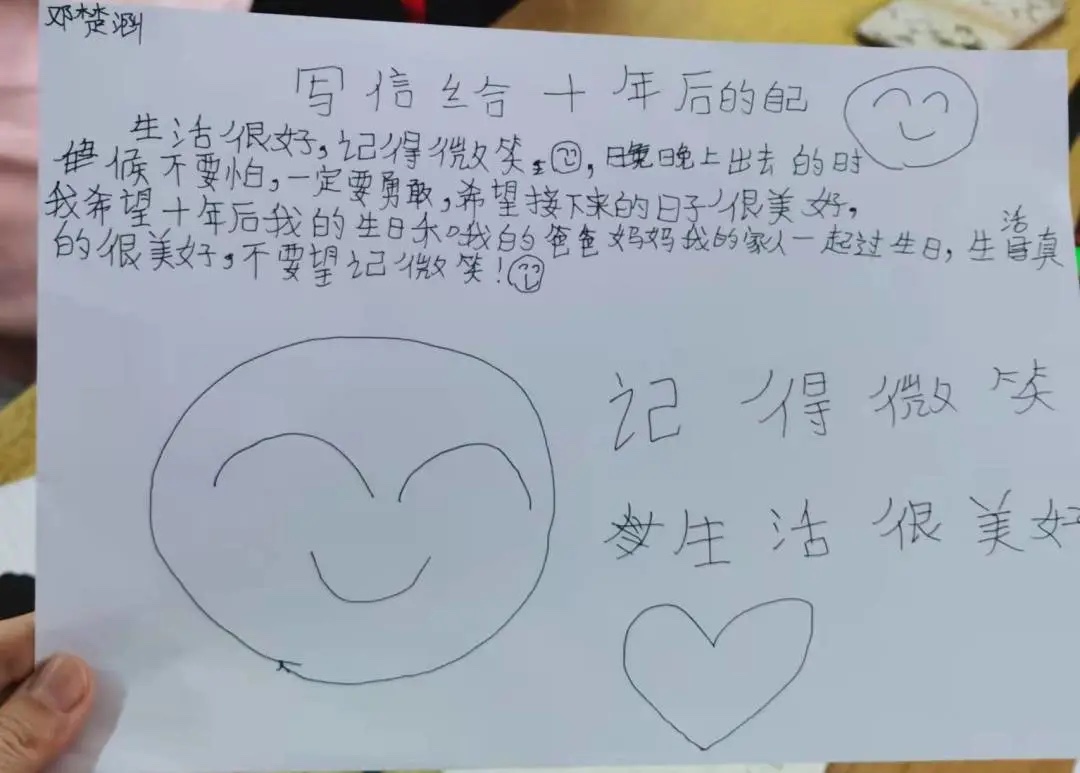 邓楚涵
写信给十年后的自己
生活很好,记得微笑。,晚上出去的时
候不要怕,一定要勇敢,希望接下来的日子很美好,
我希望十年后我的生日和我的爸爸妈妈我的家人一起过生日,生活真
的很美好,不要望记微笑!
记得微笑
生活很美好